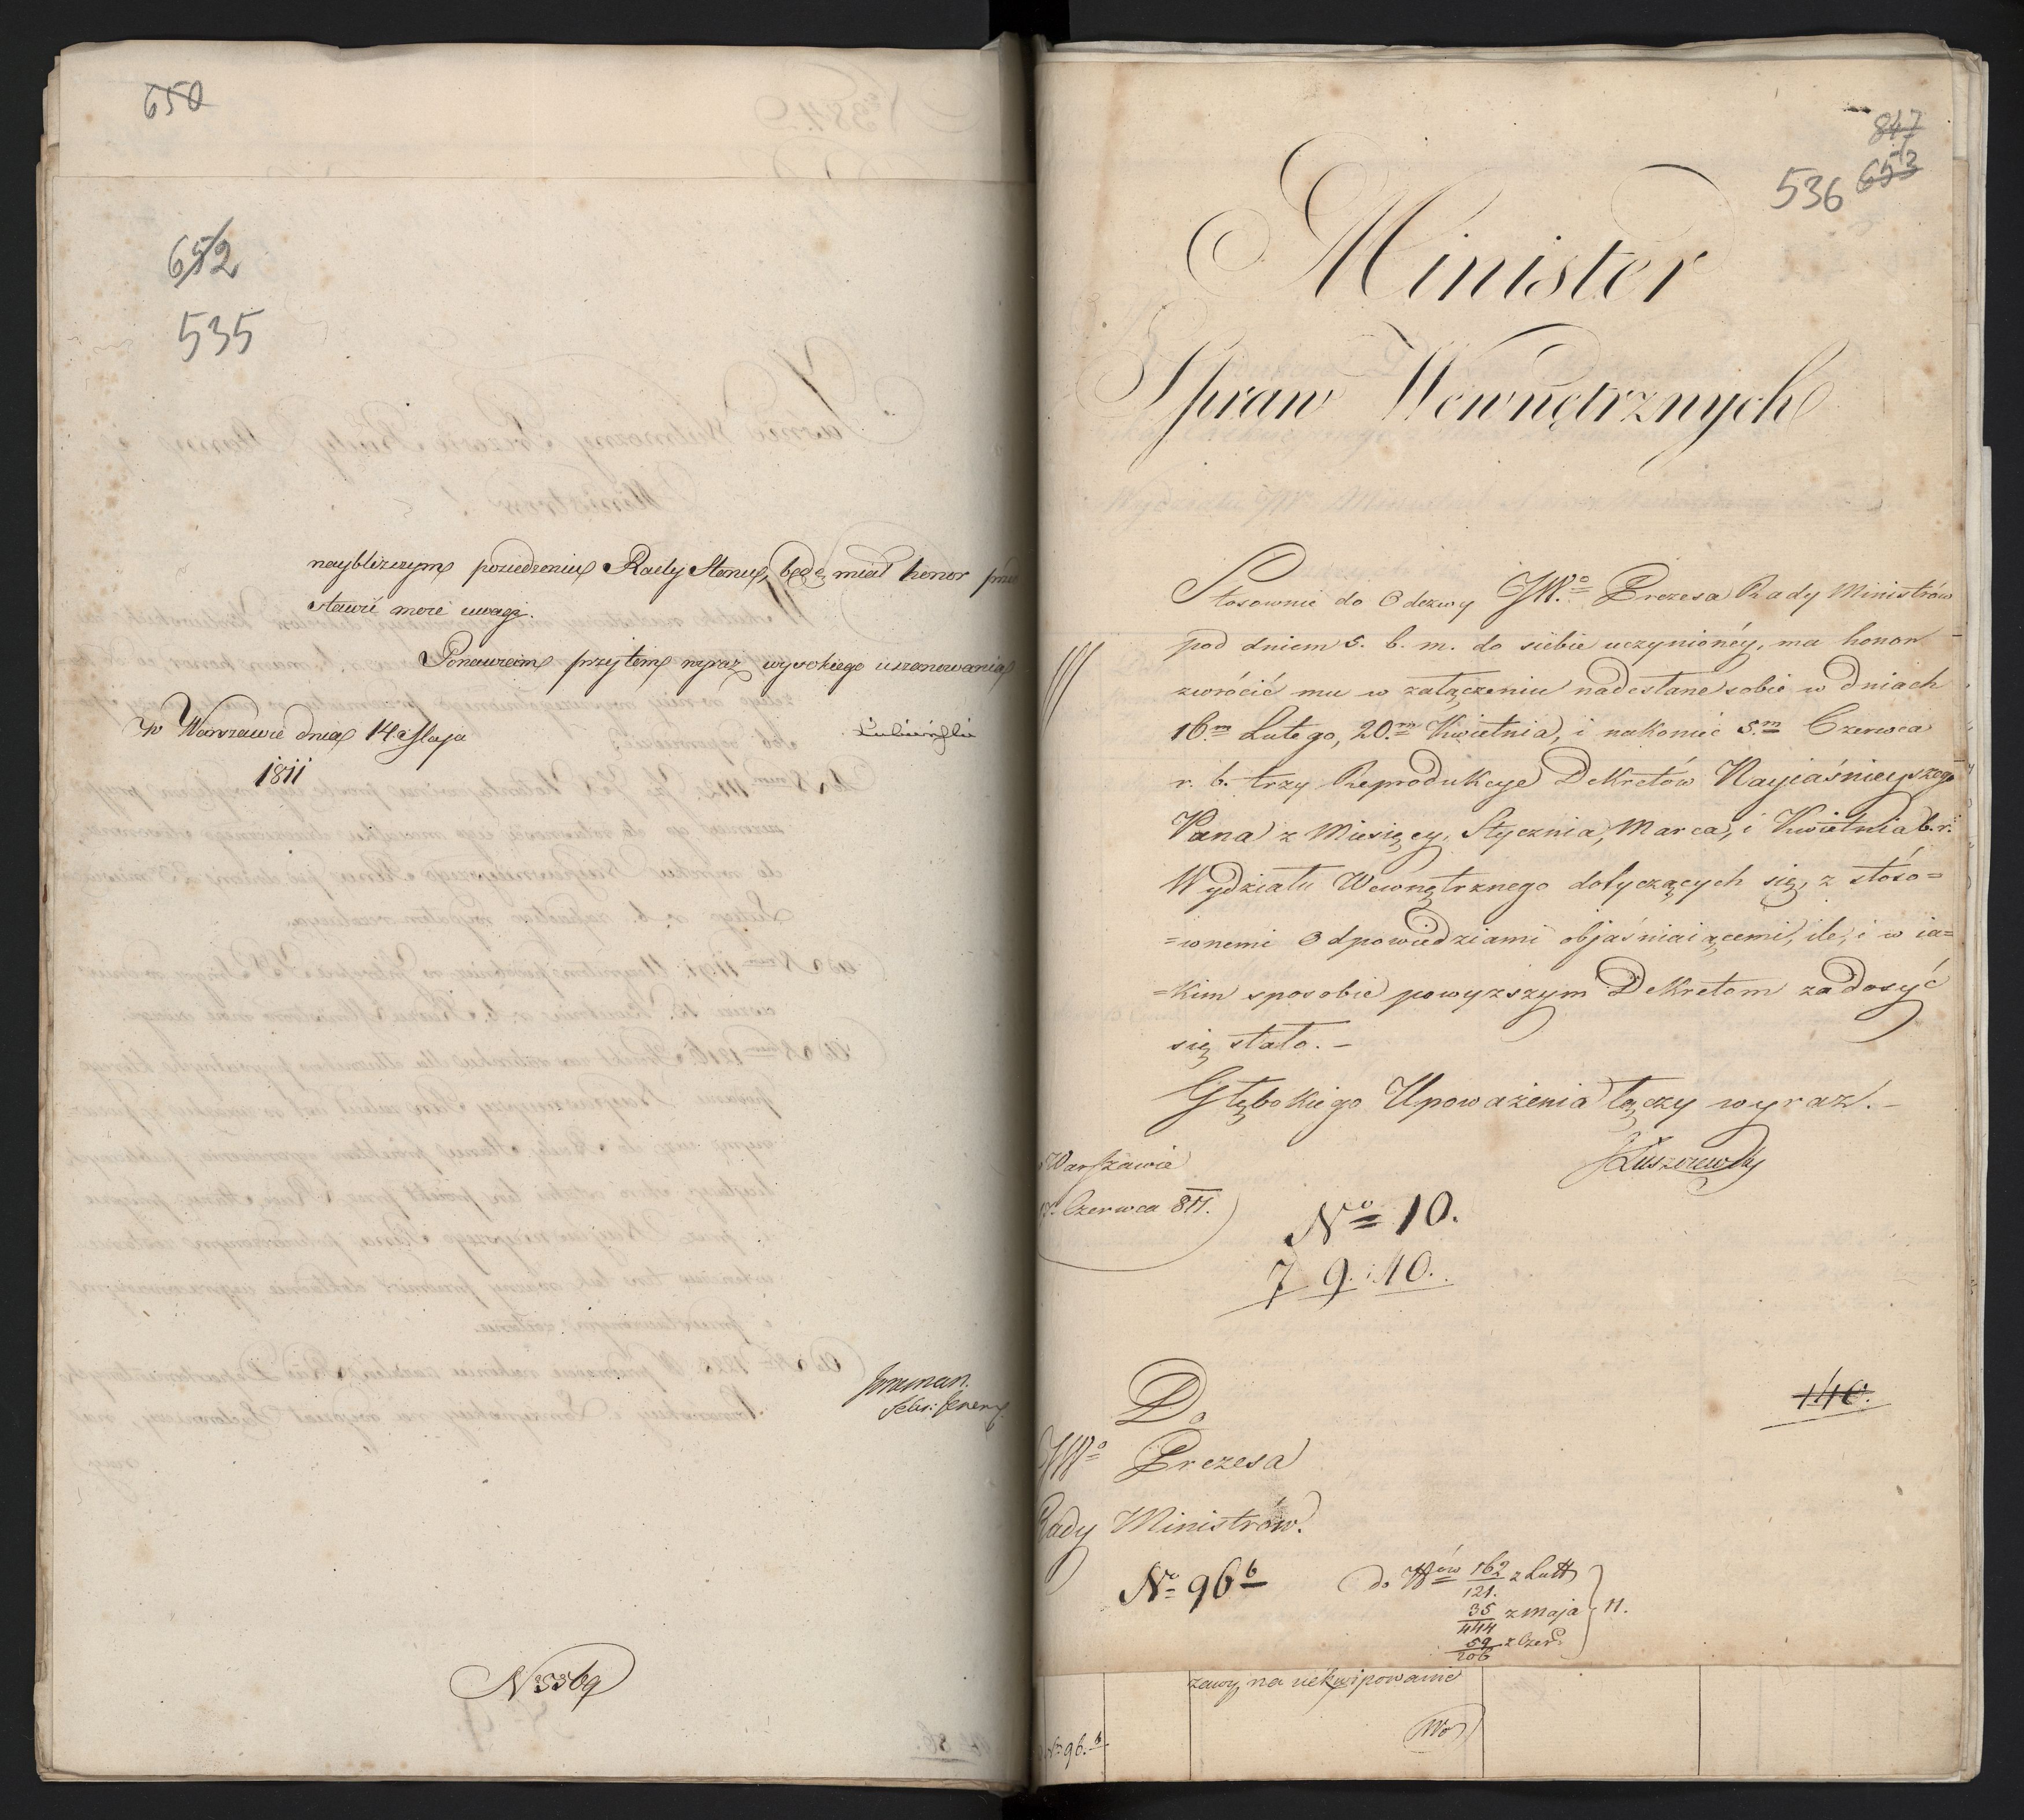 650
652
535
nayblizszym posiedzeniu Rady Stanu, będę miał honor przed
stawić moie uwagi.
Ponawiam przytem wyraz wysokiego uszanowania
w Warszawie dnia 14. Maja
1811
Łubieński
Sekr: Jener.
No 3569
847
653
536
Minister
Spraw Wewnętrznych
Stosownie do Odezwy JW.o Prezesa Rady Ministrów
pod dniem 5. b. m. do siebie uczynionéy, ma honor
zwrócić mu w załączeniu nadesłane sobie w dniach
16.m Lutego, 20.m Kwietnia, i nakoniec 5.m Czerwca
r. b. trzy Reprodukcye Dekretów Nayiaśnieyszego
Pana z Miesięcy, Stycznia, Marca, i Kwietnia b. r.
Wydziału Wewnętrznego dotyczących się, z stóso=
=wnemi Odpowiedziami objaśniaiącemi, ile, i w ia=
=kim sposobie powyzszym Dekretom zadosyć
się stało. –
Głębokiego Upoważenia łączy wyraz. –
JŁuszczewski
Warszawie
Czerwca 811.
No 10.
7 9. 10.
Do
JWo Prezesa
140.
Rady Ministrów.
No 96 b
do Nrów 162/121. z Lutt
35/444 z Maja } 11.
59/206 z Czer:
zawy na uekwipowanie
No 96. b